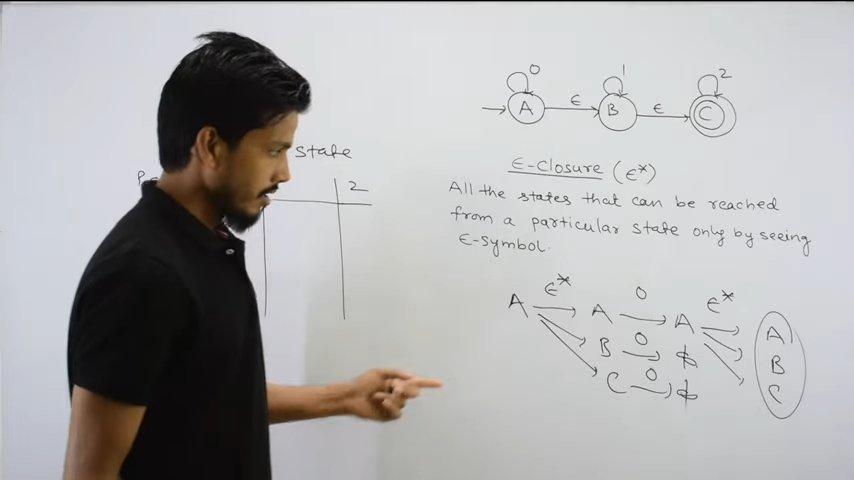 0 1 2
A ε B ε C
ε-closure (ε*)
All the states that can be reached
from a particular state only by seeing
ε-symbol.
state
2
A ε* A 0 A ε* A
B 0 ϕ B
C 0 ϕ C